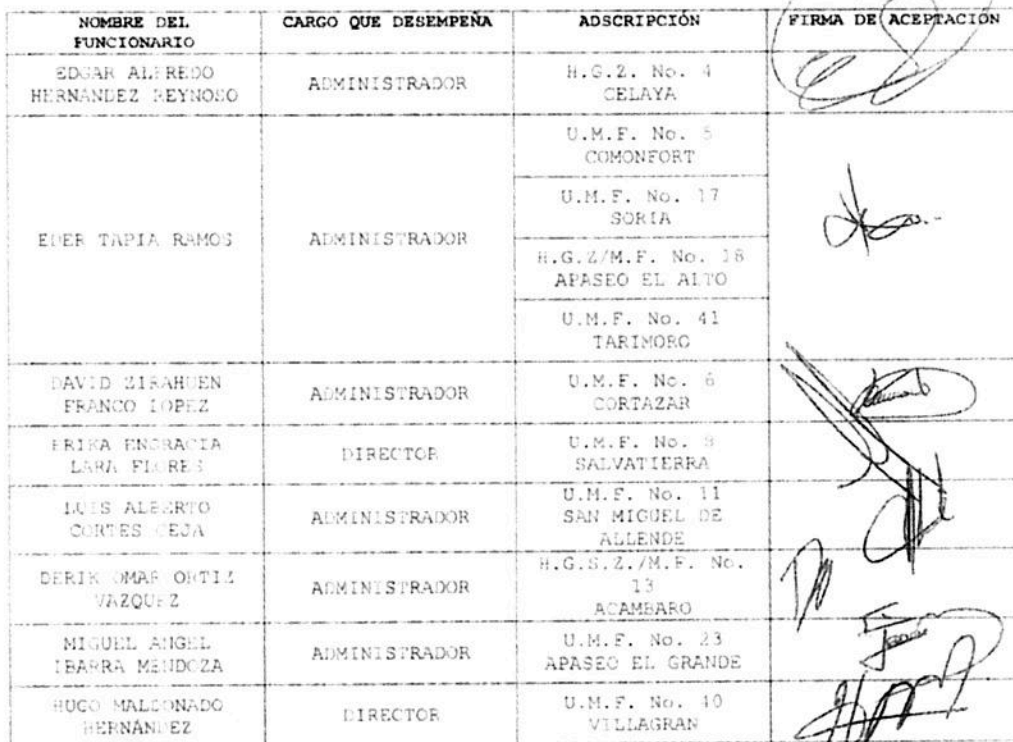 NOMBRE DEL FUNCIONARIO CARGO QUE DESEMPEÑA ADSCRIPCIÓN FIRMA DE ACEPTACIÓN
EDGAR ALFREDO HERNANDEZ REYNOSO ADMINISTRADOR H.G.Z. No. 4 CELAYA
EDER TAPIA RAMOS ADMINISTRADOR U.M.F. No. 5 COMONFORT
U.M.F. No. 17 SORIA
H.G.Z/M.F. No. 18 APASEO EL ALTO
U.M.F. No. 41 TARIMORO
DAVID ZIRAHUEN FRANCO LOPEZ ADMINISTRADOR U.M.F. No. 6 CORTAZAR
ERIKA ENGRACIA LARA FLORES DIRECTOR U.M.F. No. SALVATIERRA
LUIS ALBERTO CORTES CEJA ADMINISTRADOR U.M.F. No. 11 SAN MIGUEL DE ALLENDE
DERIK OMAR ORTIZ VAZQUEZ ADMINISTRADOR H.G.S.Z./M.F. No. 13 ACAMBARO
MIGUEL ANGEL IBARRA MENDOZA ADMINISTRADOR U.M.F. No. 23 APASEO EL GRANDE
HUGO MALDONADO HERNÁNDEZ DIRECTOR U.M.F. No. 40 VILLAGRAN